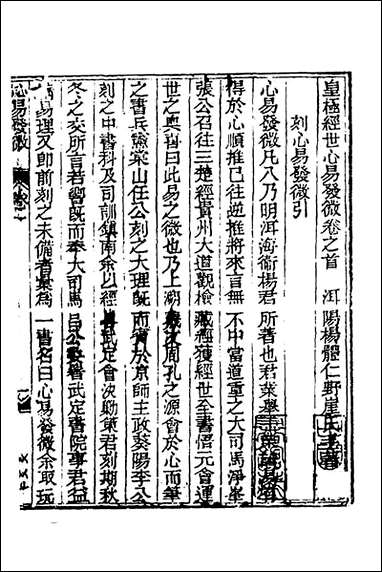 皇極經世心易發微卷之首　洱陽楊體仁野崖氏
刻心易發微引
心易發微凡八乃明洱海衞楊君所著也君業舉
得於心順推已往逆推將來言無不中當道重之大司馬淨峯
張公召往三楚經貴州大道觀檢藏經獲經世全書悟元會運
世之奧喜曰此易之微也乃上溯羲文周孔之源會於心而筆
之書兵憲梁山任公刻之大理旣而實於京師主政葵陽李公
刻之中書科及司訓鎮南余以經武定會决勵策君刻期秋
冬之交所言若響旣而奉大司馬呂公武定書院事君益
易理又即前刻之未備者彙為一書名曰心易發微余取玩
心易發微